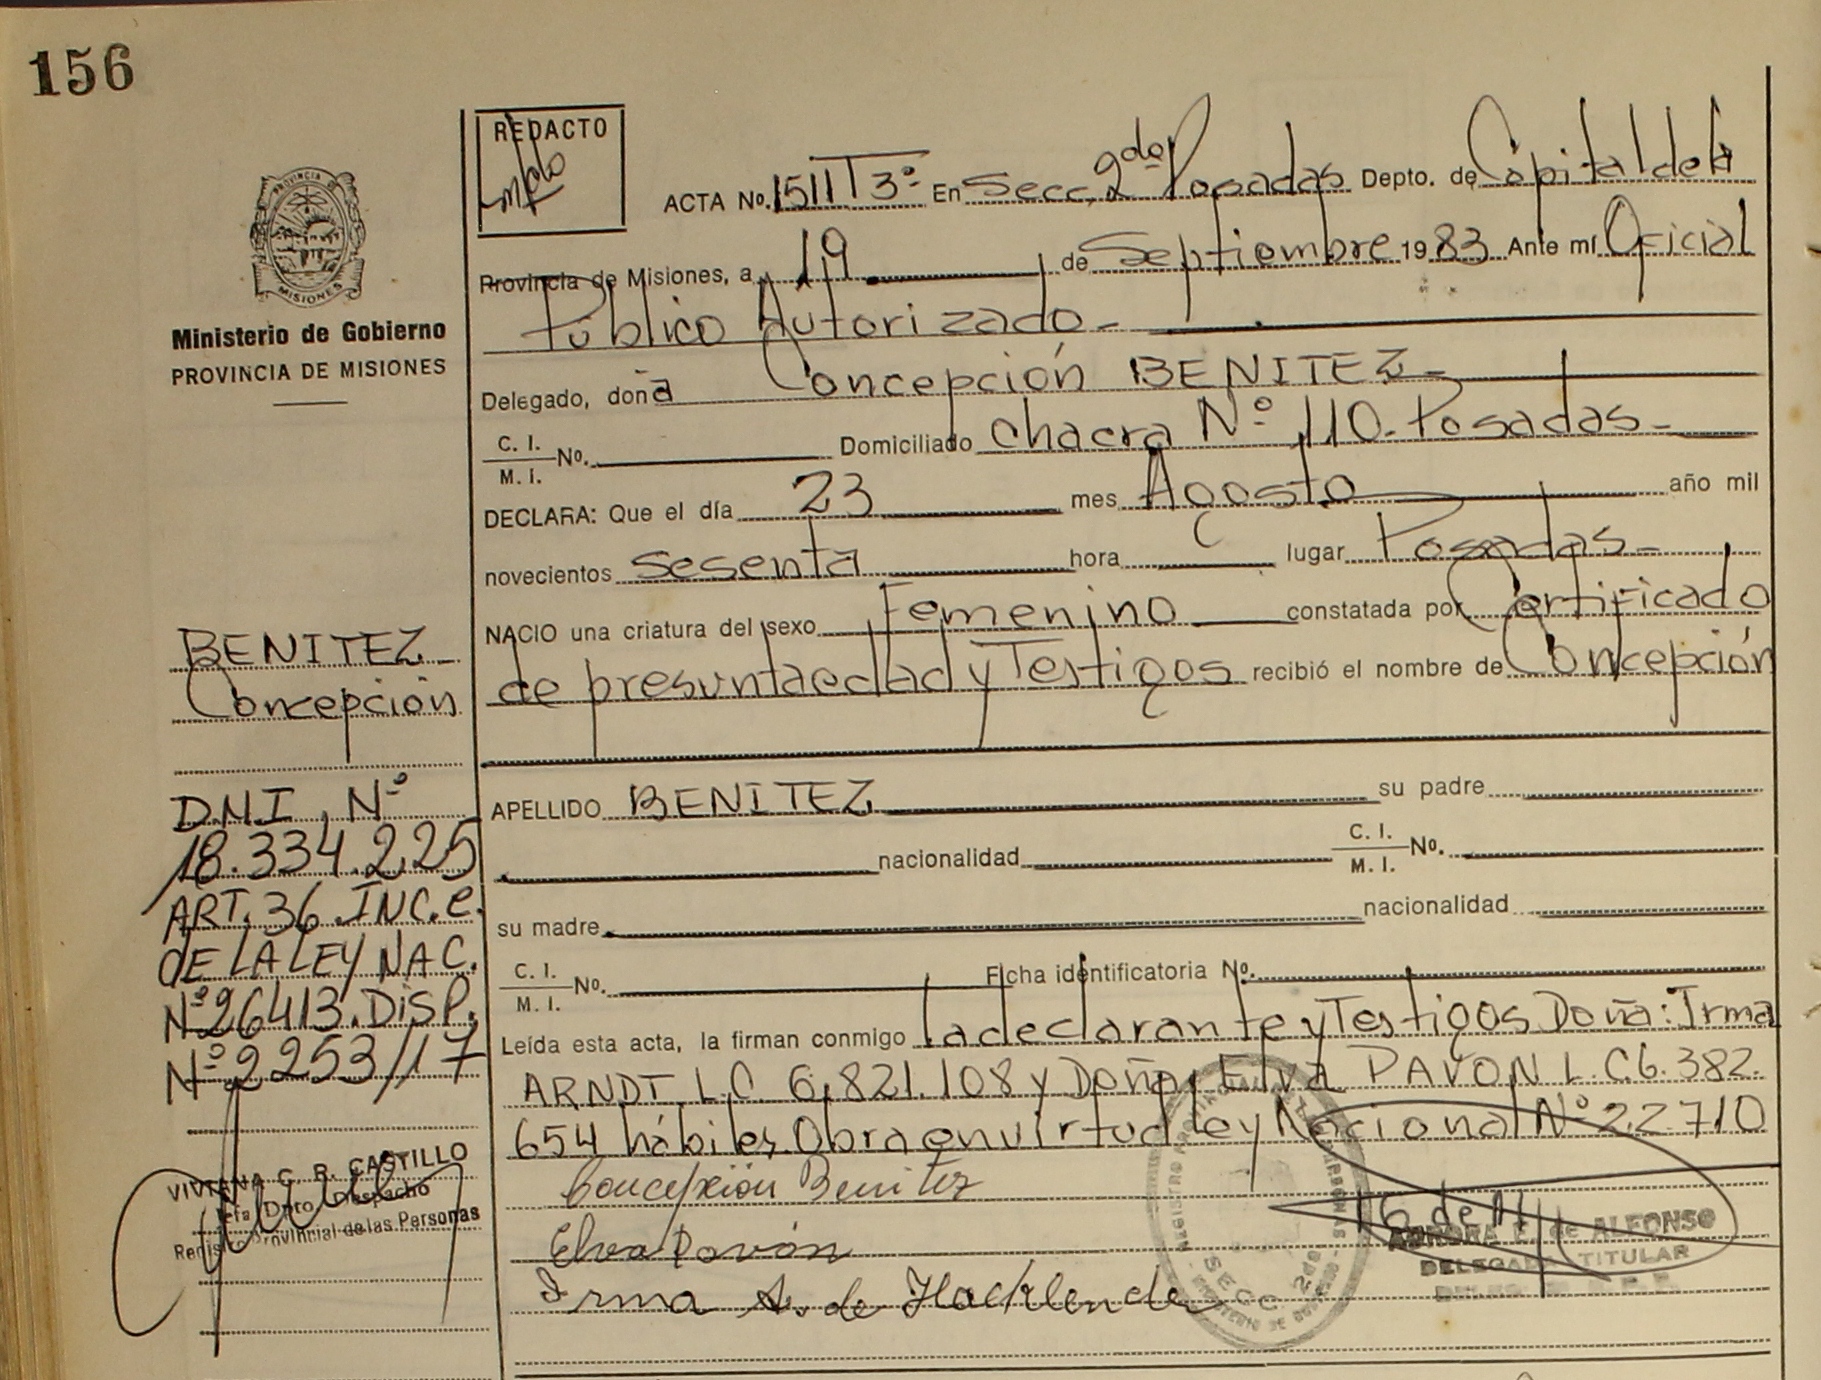 156
REDACTO
PROVINCIA DE
MISIONES
Ministerio de Gobierno
PROVINCIA DE MISIONES
ACTA Nº. 1511 T3º En Secc. 2da Posadas Depto. de Capital de la
Provincia de Misiones, a 19 de Septiembre 1983 Ante mí Oficial
Público Autorizado-
Delegado, doña Concepción BENITEZ-
C. I.
M. I. Nº. Domiciliado Chacra Nº 110. Posadas-
DECLARA: Que el día 23 mes Agosto año mil
novecientos sesenta hora lugar Posadas-
NACIO una criatura del sexo Femenino constatada por Certificado
de presunta edad y Testigos recibió el nombre de Concepción
APELLIDO BENITEZ su padre
nacionalidad C. I.
M. I. Nº.
su madre nacionalidad
C. I.
M. I. Nº. Ficha identificatoria Nº.
Leída esta acta, la firman conmigo la declarante y Testigos Doña: Irma
ARNDT. L.C. 6.821.108 y Doña Elva PAVON L.C 6.382.
654 hábiles. Obra en virtud ley Nacional Nº 22.710
Concepción Benitez
Elva Pavón
Irma A. de
BENITEZ-
Concepción
D.N.I. Nº
18.334.225
ART. 36 INC. e.
de LA LEY NAC.
Nº 26413. DISP.
Nº 2253/17
VIVIANA C. R. CASTILLO
Jefa Dpto Despacho
Registro Provincial de las Personas
SECC 2da
E. de ALFONSO
DELEGADA TITULAR